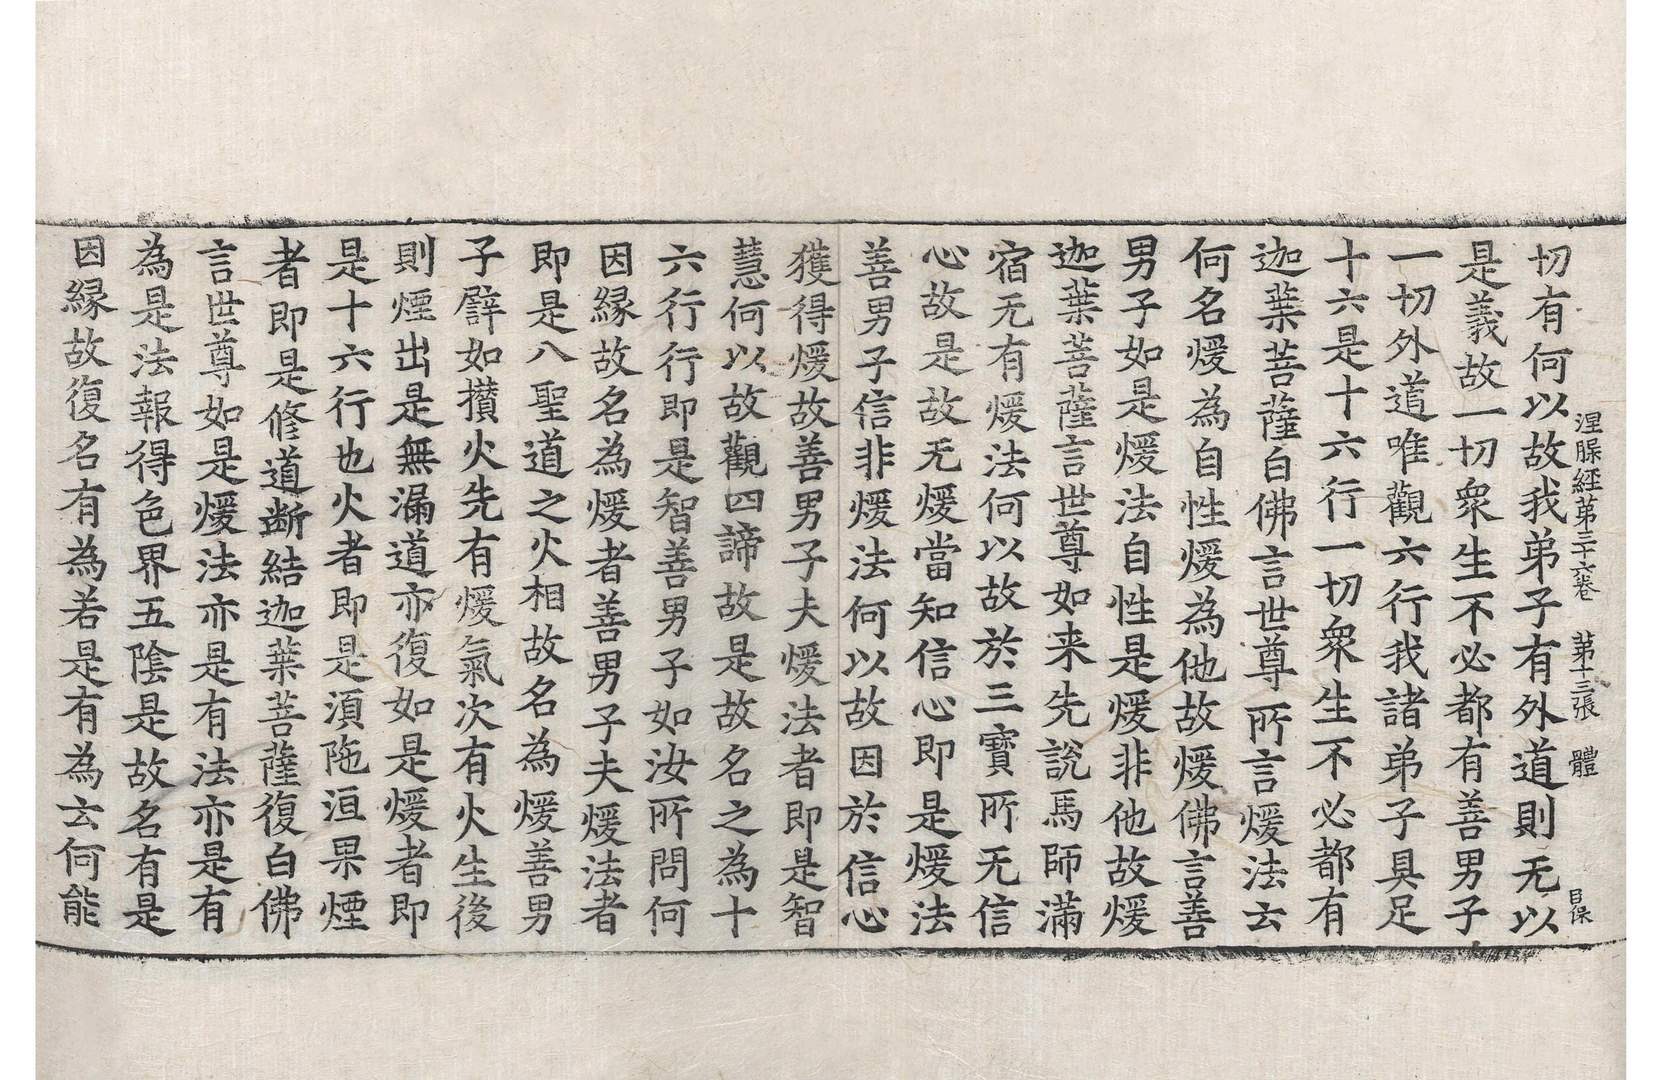 涅槃經第三十六卷 第十三張 體 目保
切有何以故我弟子有外道則无以
是義故一切衆生不必都有善男子
一切外道唯觀六行我諸弟子具足
十六是十六行一切衆生不必都有
迦葉菩薩白佛言世尊所言煖法云
何名煖為自性煖為他故煖佛言善
男子如是煖法自性是煖非他故煖
迦葉菩薩言世尊如来先說馬師滿
宿无有煖法何以故於三寶所无信
心故是故无煖當知信心即是煖法
善男子信非煖法何以故因於信心
獲得煖故善男子夫煖法者即是智
慧何以故觀四諦故是故名之為十
六行行即是智善男子如汝所問何
因縁故名為煖者善男子夫煖法者
即是八聖道之火相故名為煖善男
子譬如攅火先有煖氣次有火生後
則煙出是無漏道亦復如是煖者即
是十六行也火者即是湏陁洹果煙
者即是修道断結迦葉菩薩復白佛
言世尊如是煖法亦是有法亦是有
為是法報得色界五陰是故名有是
因縁故復名有為若是有為云何能